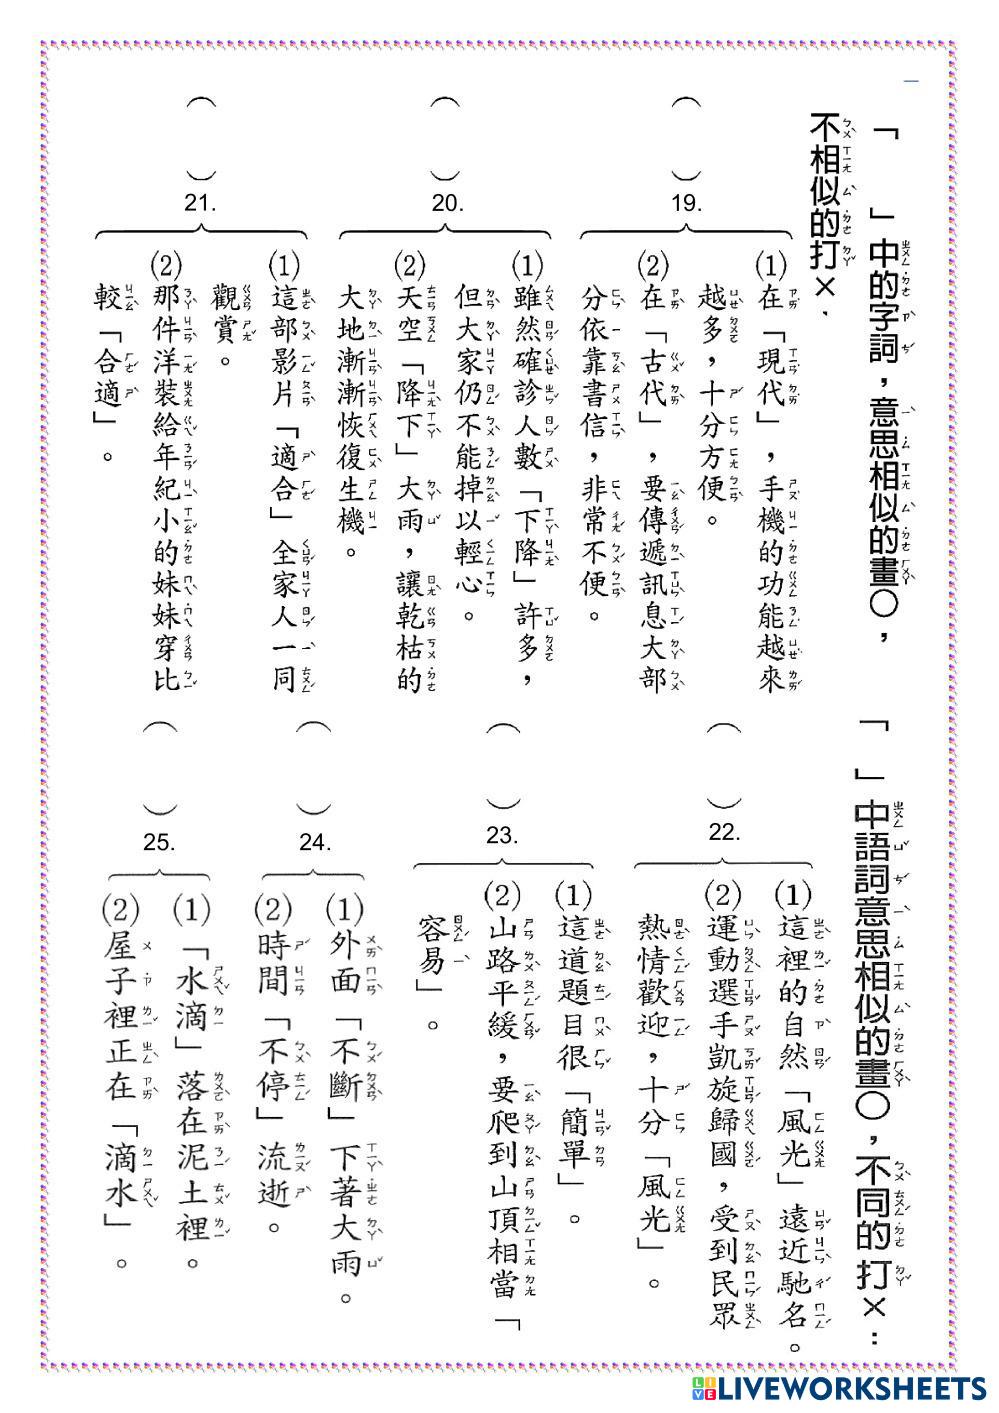 一
「　　」中的字詞，意思相似的畫○，
不相似的打×.
（　　）19.
(1)在「現代」，手機的功能越來
越多，十分方便。
(2)在「古代」，要傳遞訊息大部
分依靠書信，非常不便。
（　　）20.
(1)雖然確診人數「下降」許多，
但大家仍不能掉以輕心。
(2)天空「降下」大雨，讓乾枯的
大地漸漸恢復生機。
（　　）21.
(1)這部影片「適合」全家人一同
觀賞。
(2)那件洋裝給年紀小的妹妹穿比
較「合適」。
「　　」中語詞意思相似的畫○，不同的打×：
（　　）22.
(1)這裡的自然「風光」遠近馳名。
(2)運動選手凱旋歸國，受到民眾
熱情歡迎，十分「風光」。
（　　）23.
(1)這道題目很「簡單」。
(2)山路平緩，要爬到山頂相當「
容易」。
（　　）24.
(1)外面「不斷」下著大雨。
(2)時間「不停」流逝。
（　　）25.
(1)「水滴」落在泥土裡。
(2)屋子裡正在「滴水」。
LIVEWORKSHEETS